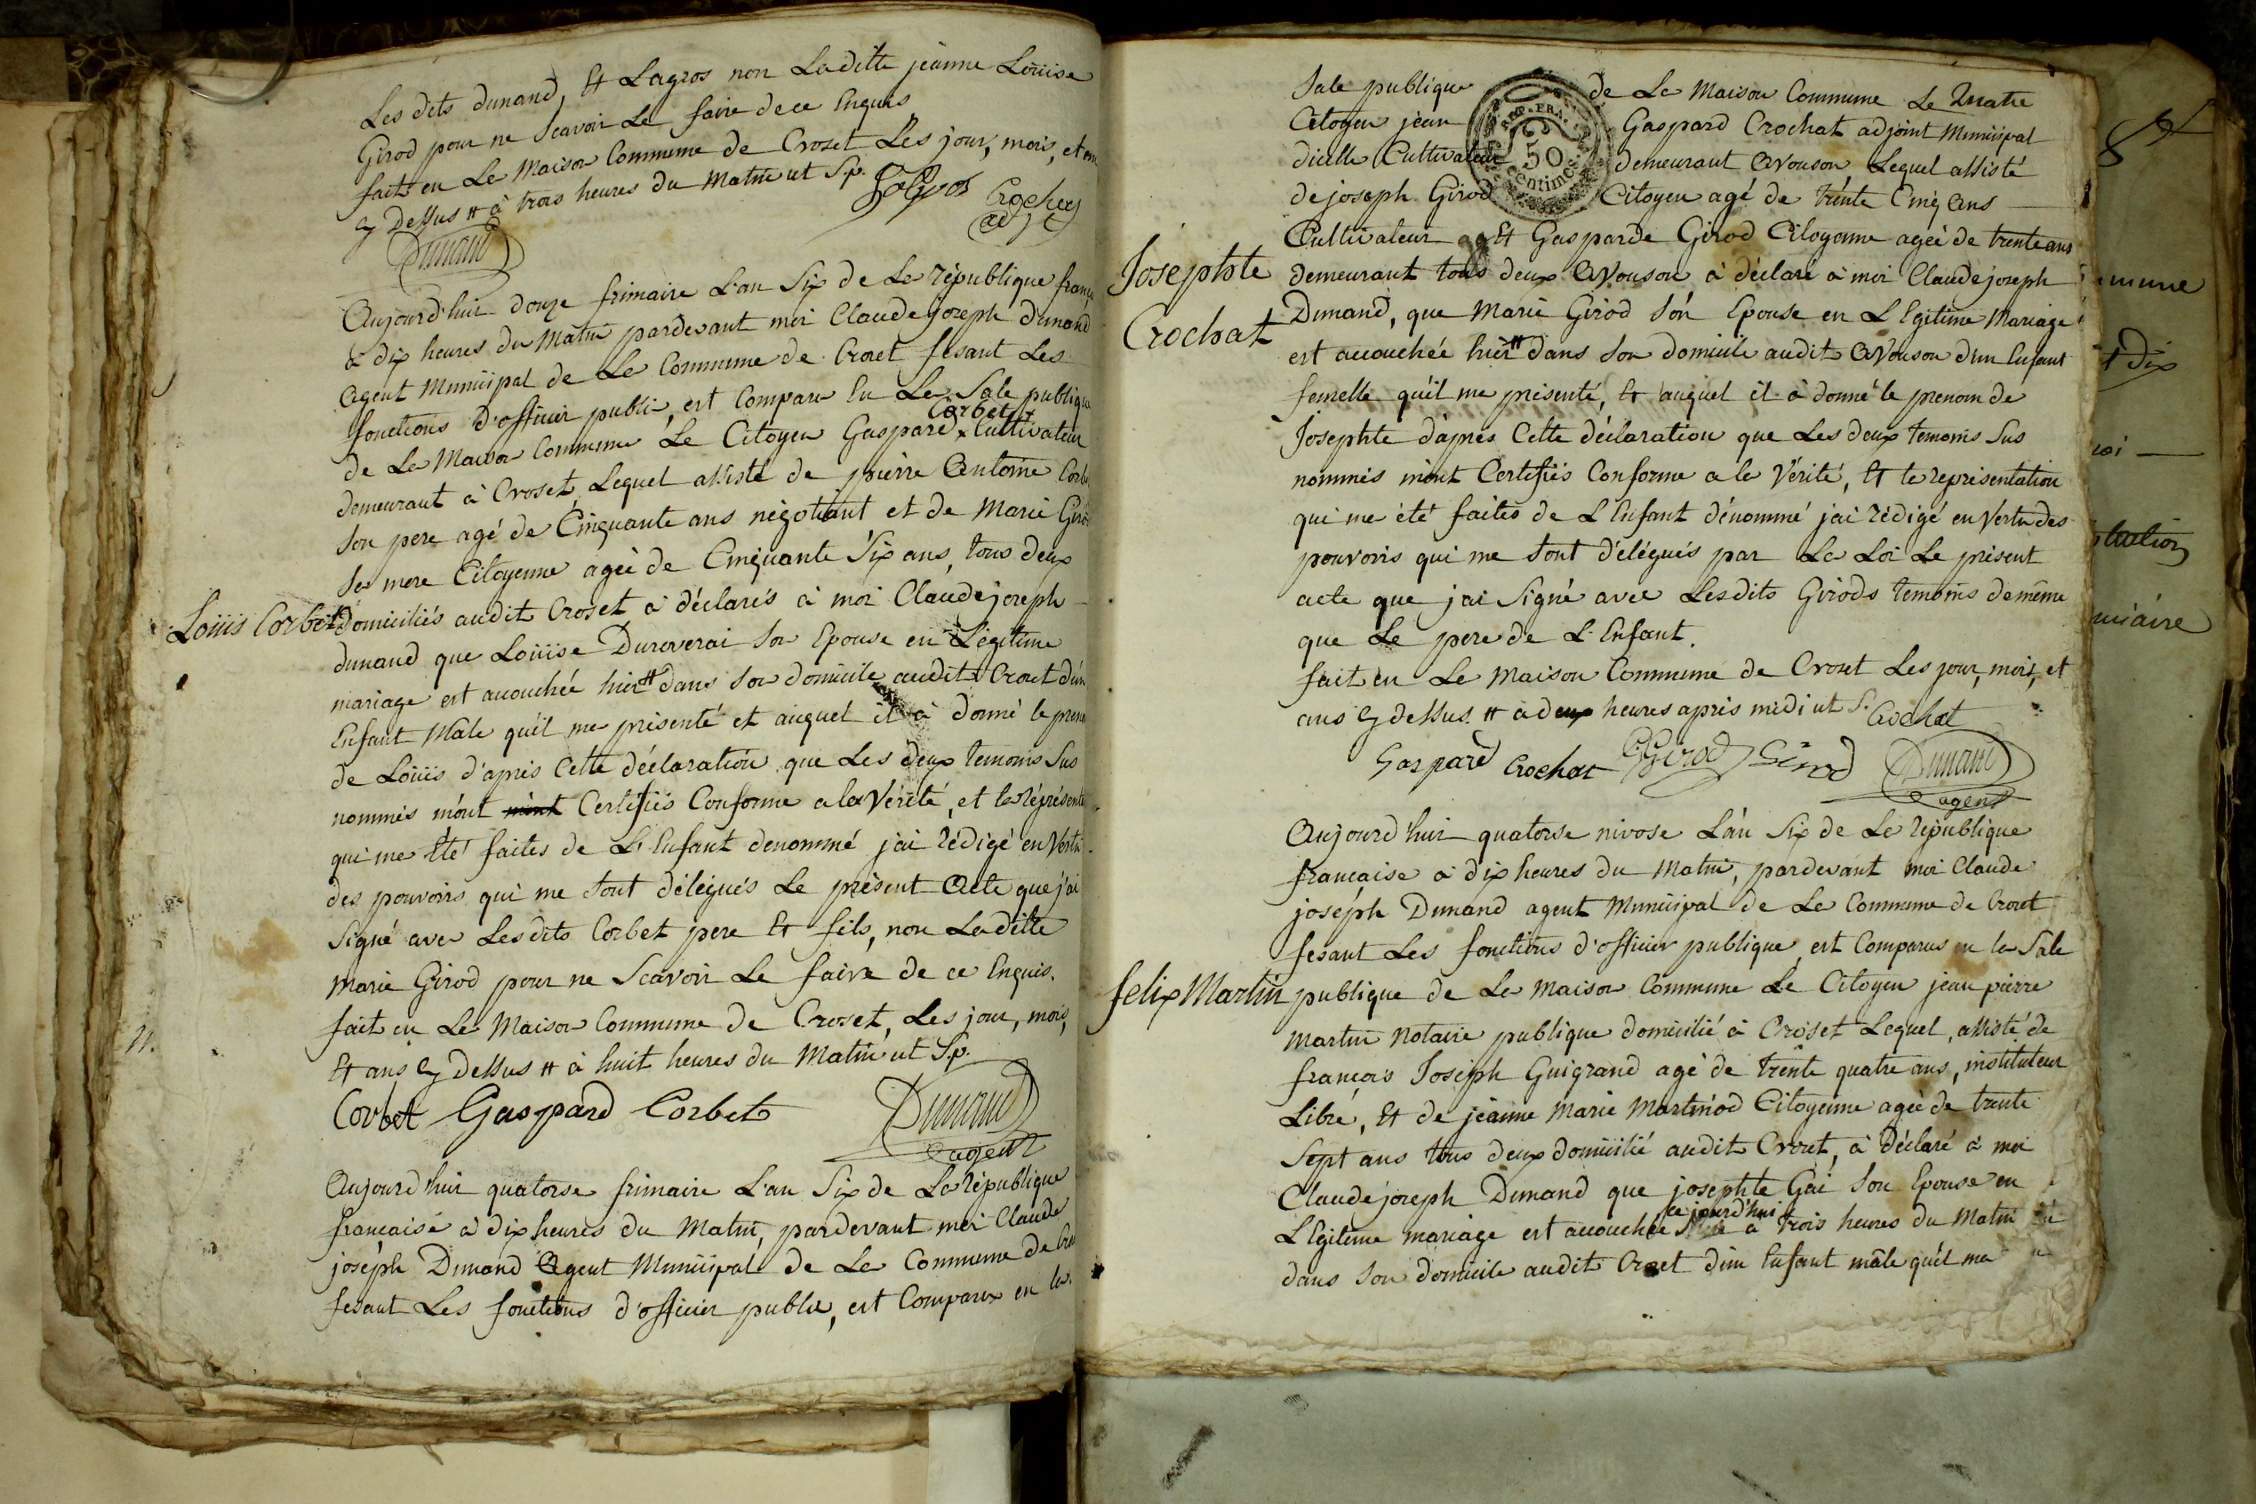 Les dits dunand, Et Lagros non Laditte jeanne Loüise
Girod pour ne Scavoir Le faire de ce Enquis
fait en La Maison Commune de Crozet Les jour, mois, et
cy dessus # à trois heures du Matin ut Sp.
Dunand
Aujourd'hui douze frimaire L'an Six de La république
à dix heures du Matin pardevant moi Claude joseph dunand
Agent Municipal de La Commune de Crozet fesant Les
fonctions d'officier publi, est Comparu En La Sale publique
Corbet
de La Maison Commune Le Citoyen Gaspard x Cultivateur
demeurant à Croset, Lequel assisté de pierre Antoine
Son pere agé de Cinquante ans négotiant et de Marie
Sa mere Citoyenne agée de Cinquante Six ans, tous deux
Loüis Corbet
domiciliés audit Croset à déclarés à moi Claude joseph
dunand que Loüise Duroverai Son Epouse en Légitime
mariage est accouchée hier # dans Son domicile audit Crozet d'un
Enfant Mâle qu'il me présenté et auquel il à donné le
de Loüis d'après Cette déclaration que Les deux temoins Sus
nommés m'ont Certifiés Conforme a la Vérité, et la
qui me été faites de L'Enfant denommé j'ai rédigé en Vertu
des pouvoirs qui me sont délégués Le présent Acte que j'ai
Signé avec Lesdits Corbet pere Et fils, non Laditte
Marie Girod pour ne Scavoir Le faire de ce Enquis.
fait en La Maison Commune de Croset, Les jour, mois,
Et ans cy dessus # à huit heures du Matin ut S.p.
Corbet Gaspard Corbet Dunand
agent
Aujourd'hui quatorse frimaire L'an Six de La république
française à dix heures du Matin, pardevant moi Claude
joseph Dunand Agent Municipal de La Commune de
fesant Les fonctions d'officier public, est Comparu en la
Sale publique de La Maison Commune Le
Citoyen jean Gaspard Crochat adjoint Municipal
Cultivateur demeurant Avouson, Lequel assisté
de joseph Girod Citoyen agé de trente Cinq ans
REP. FRA.
50
Centimes
Cultivateur Et Gasparde Girod Citoyenne agée de trente ans
Josephte
Crochat
demeurant tous deux Avouson à déclaré à moi Claude joseph
Dunand, que Marie Girod Son Epouse en LEgitime Mariage
est accouchée hier # dans Son domicile audit Avouson d'un Enfant
femelle qu'il me présenté, Et auquel il à donné le prenom de
Josephte d'après Cette déclaration que Les deux temoins Sus
nommés m'ont Certifiés Conforme a la Vérité, Et la représentation
qui me été faites de L'Enfant dénommé j'ai rédigé en Vertu des
pouvoirs qui me sont délégués par La Loi Le présent
acte que j'ai Signé avec Lesdits Girods temoins de même
que Le pere de L'Enfant.
fait en La Maison Commune de Crozet Les jour, mois, et
ans cy dessus. # à deux heures après midi ut S. Crochat
Gaspard Crochat Girod Girod Dunand
agent
Aujourd'hui quatorse nivose L'an Six de La république
française à dix heures du Matin, pardevant moi Claude
joseph Dunand agent Municipal de La Commune de Crozet
fesant Les fonctions d'officier publique, est Comparus en la Sale
felix Martin
publique de La Maison Commune Le Citoyen jean pierre
Martin Notaire publique domicilié à Croset Lequel, assisté de
françois Joseph Guigrand agé de trente quatre ans, instituteur
Libre, Et de jeanne Marie Martinod Citoyenne agée de trente
Sept ans tous deux domicilié audit Crozet, à déclaré à moi
Claude joseph Dunand que josephte Gai Son Epouse en
ce jourd'hui
LEgitime mariage est accouchée à trois heures du Matin
dans Son domicile audit Crozet d'un Enfant mâle qu'il ma